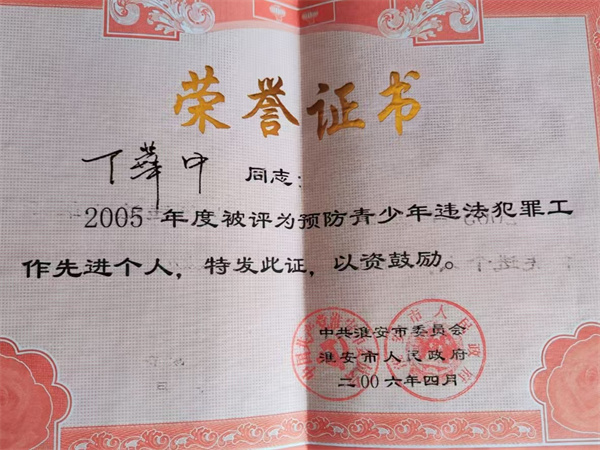 荣誉证书
丁华中 同志:
2005 年度被评为预防青少年违法犯罪工
作先进个人，特发此证，以资鼓励。
中共淮安市委员会
淮安市人民政府
二00六年四月